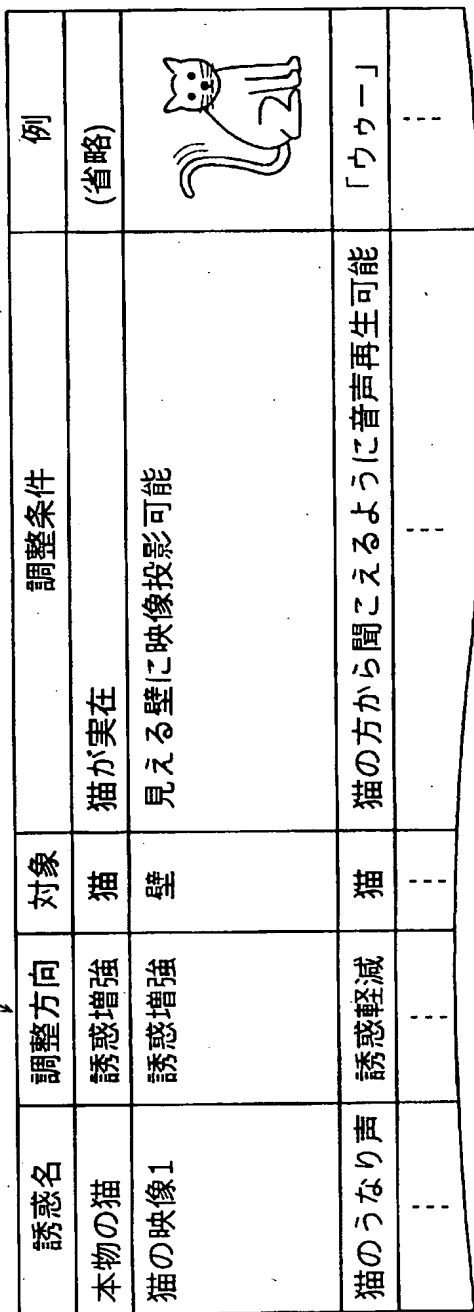 誘惑名 調整方向 対象 調整条件 例
本物の猫 誘惑増強 猫 猫が実在 (省略)
猫の映像1 誘惑増強 壁 見える壁に映像投影可能
猫のうなり声 誘惑軽減 猫 猫の方から聞こえるように音声再生可能 「ウゥー」